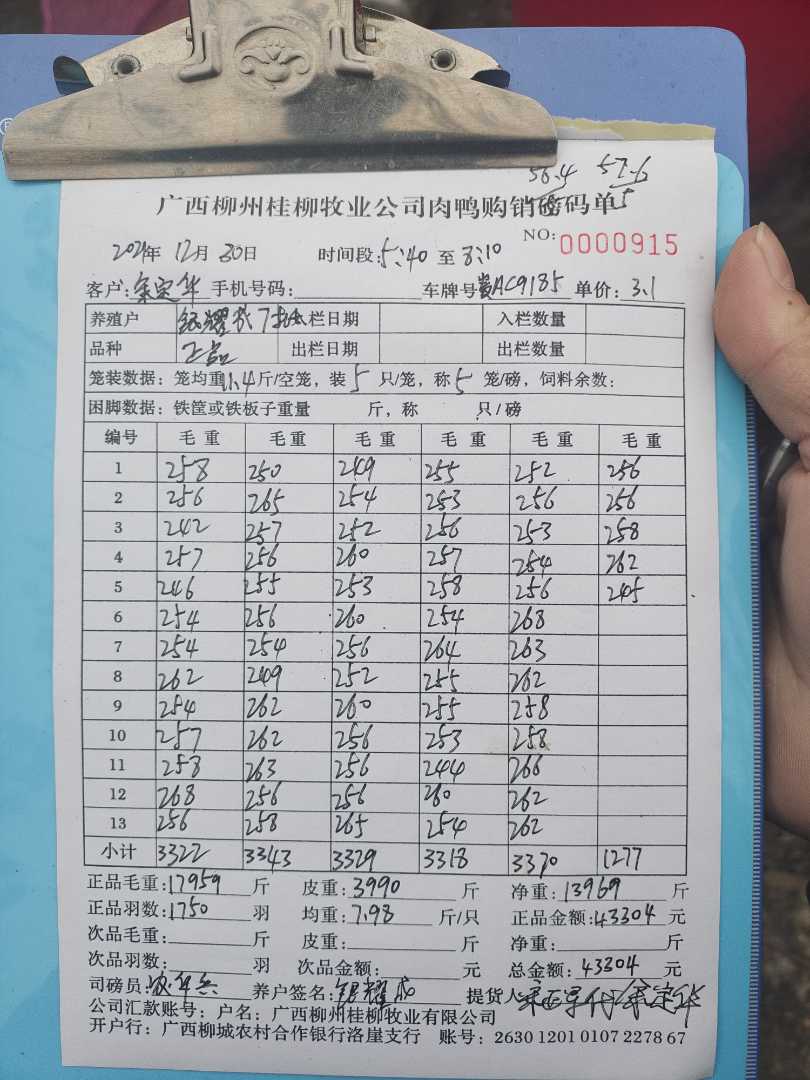 56.4 57.6
5
广西柳州桂柳牧业公司肉鸭购销磅码单
NO: 0000915
2021年 12月 30日 时间段: 5:40 至 8:10
客户: 余定华 手机号码: 车牌号 贵AC9185 单价: 3.1
养殖户 耀 入栏日期 入栏数量
品种 正品 出栏日期 出栏数量
笼装数据: 笼均重 11.4 斤/空笼, 装 5 只/笼, 称 5 笼/磅, 饲料余数:
困脚数据: 铁筐或铁板子重量 斤, 称 只/磅
编号 毛重 毛重 毛重 毛重 毛重 毛重
1 258 250 249 255 252 256
2 256 265 254 253 256 256
3 242 257 252 256 253 258
4 257 256 260 257 254 262
5 246 255 253 258 256 245
6 254 256 260 254 268
7 254 254 256 264 263
8 262 249 252 255 262
9 254 262 260 255 258
10 257 262 256 253 258
11 258 263 256 244 266
12 268 256 256 260 262
13 256 258 265 254 262
小计 3322 3343 3329 3318 3370 1277
正品毛重: 17959 斤 皮重: 3990 斤 净重: 13969 斤
正品羽数: 1750 羽 均重: 7.98 斤/只 正品金额: 43304 元
次品毛重: 斤 皮重: 斤 净重: 斤
次品羽数: 羽 次品金额: 元 总金额: 43304 元
司磅员: 养户签名: 银耀武 提货人 代余定华
公司汇款账号: 户名: 广西柳州桂柳牧业有限公司
开户行: 广西柳城农村合作银行洛崖支行 账号: 2630 1201 0107 2278 67